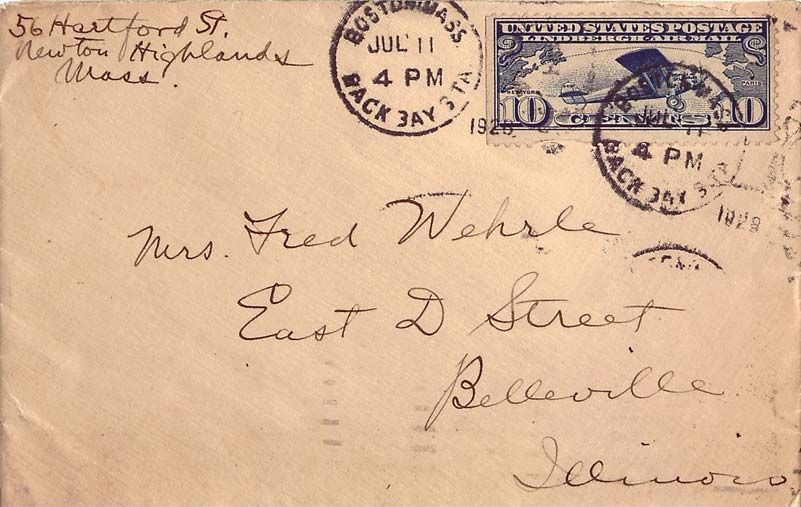 56 Hartford St.
Newton Highlands
Mass.
BOSTON, MASS.
JUL 11
4 PM
BACK BAY STA.
1928
UNITED STATES POSTAGE
LINDBERGH AIR MAIL
NEW YORK
PARIS
10 CENTS 10
BOSTON, MASS.
JUL 11
4 PM
BACK BAY STA.
1928
Mrs. Fred Wehrle
East D Street
Belleville
Illinois